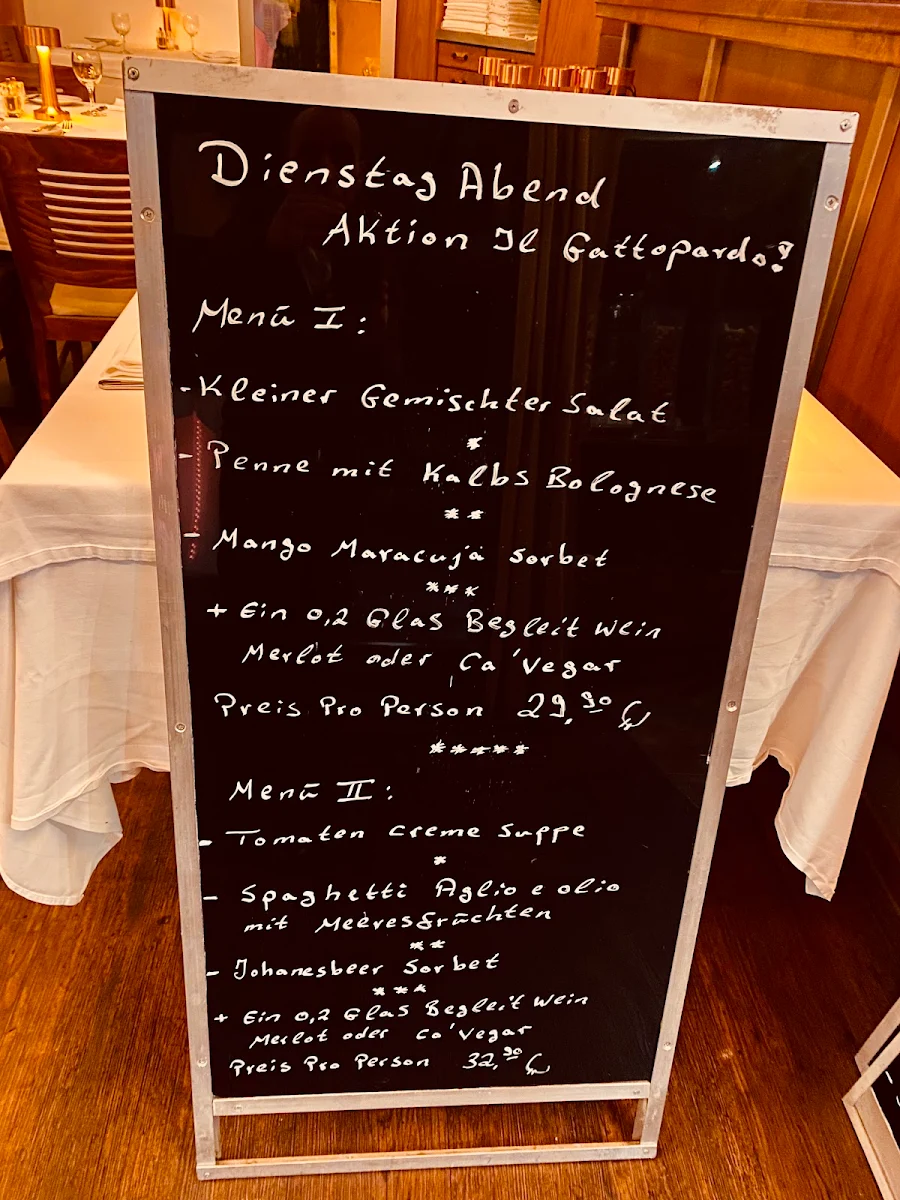 Dienstag Abend
Aktion Il Gattopardo!
Menū I:
-Kleiner Gemischter Salat
*
- Penne mit Kalbs Bolognese
**
- Mango Maracuja Sorbet
***
+ Ein 0,2 Glas Begleit Wein
Merlot oder Ca'Vegar
Preis Pro Person 29,90 €
*****
Menū II:
- Tomaten Creme Suppe
*
- Spaghetti Aglio e olio
mit Meeresfrūchten
**
- Johanesbeer Sorbet
***
+ Ein 0,2 Glas Begleit Wein
Merlot oder Ca'Vegar
Preis Pro Person 32,90 €